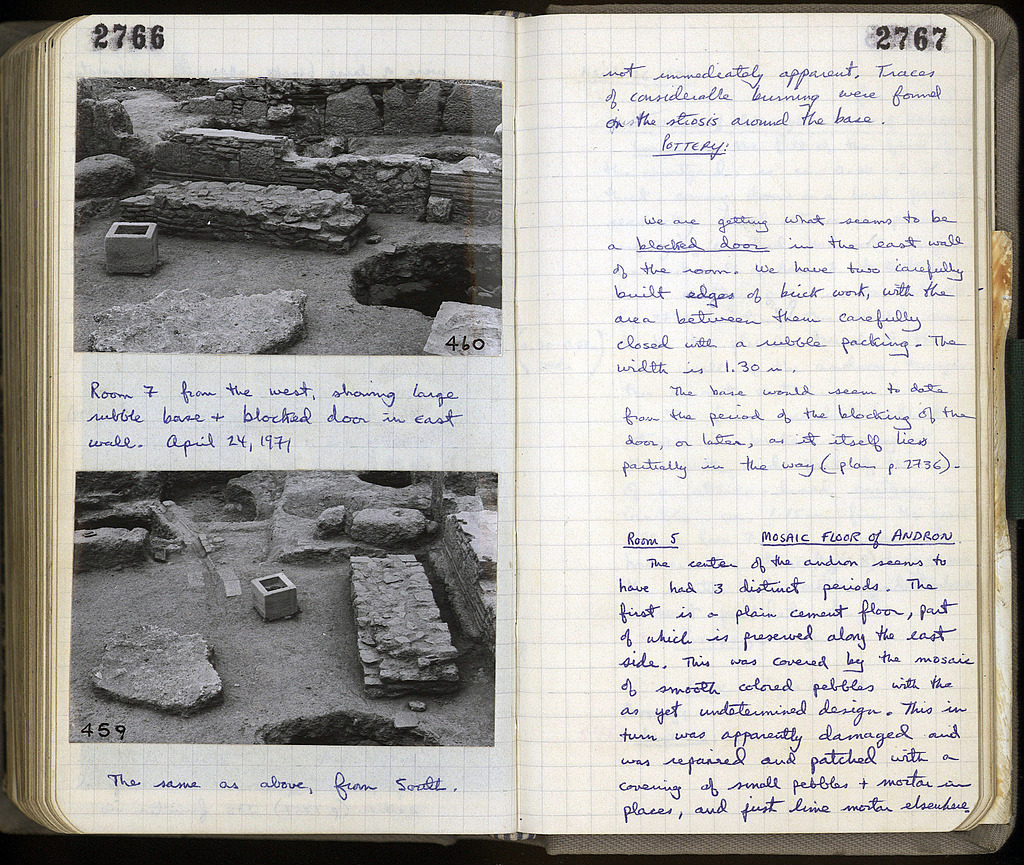 2766
460
Room 7 from the west, showing large
rubble base + blocked door in east
wall. April 24, 1971
459
The same as above, from South.
2767
not immediately apparent. Traces
of considerable burning were found
on the strosis around the base.
POTTERY:
We are getting what seems to be
a blocked door in the east wall
of the room. We have two carefully
built edges of brick work, with the
area between them carefully
closed with a rubble packing. The
width is 1.30 m.
The base would seem to date
from the period of the blocking of the
door, or later, as it itself lies
partially in the way (plan p. 2736).
Room 5 MOSAIC FLOOR of ANDRON
The center of the andron seems to
have had 3 distinct periods. The
first is a plain cement floor, part
of which is preserved along the east
side. This was covered by the mosaic
of smooth colored pebbles with the
as yet undetermined design. This in
turn was apparently damaged and
was repaired and patched with a
covering of small pebbles + mortar in
places, and just lime mortar elsewhere.